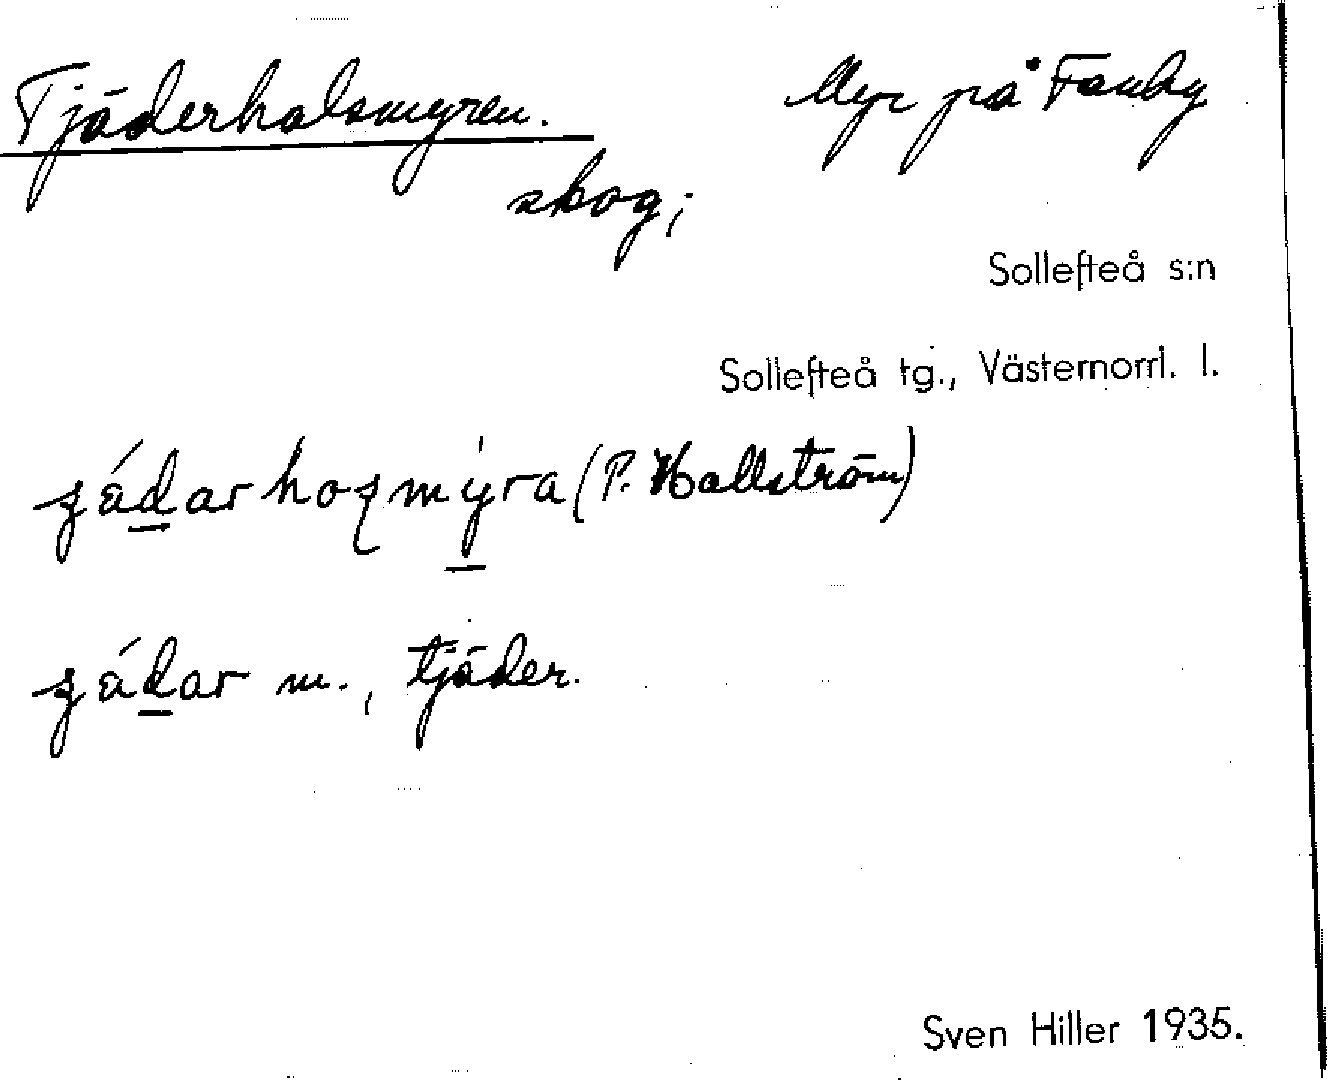 Tjäderhalsmyren. Myr på Fanby
skog;
Sollefteå s:n
Sollefteå tg., Västernorrl. l.
(P. Hallström)
m., tjäder.
Sven Hiller 1935.